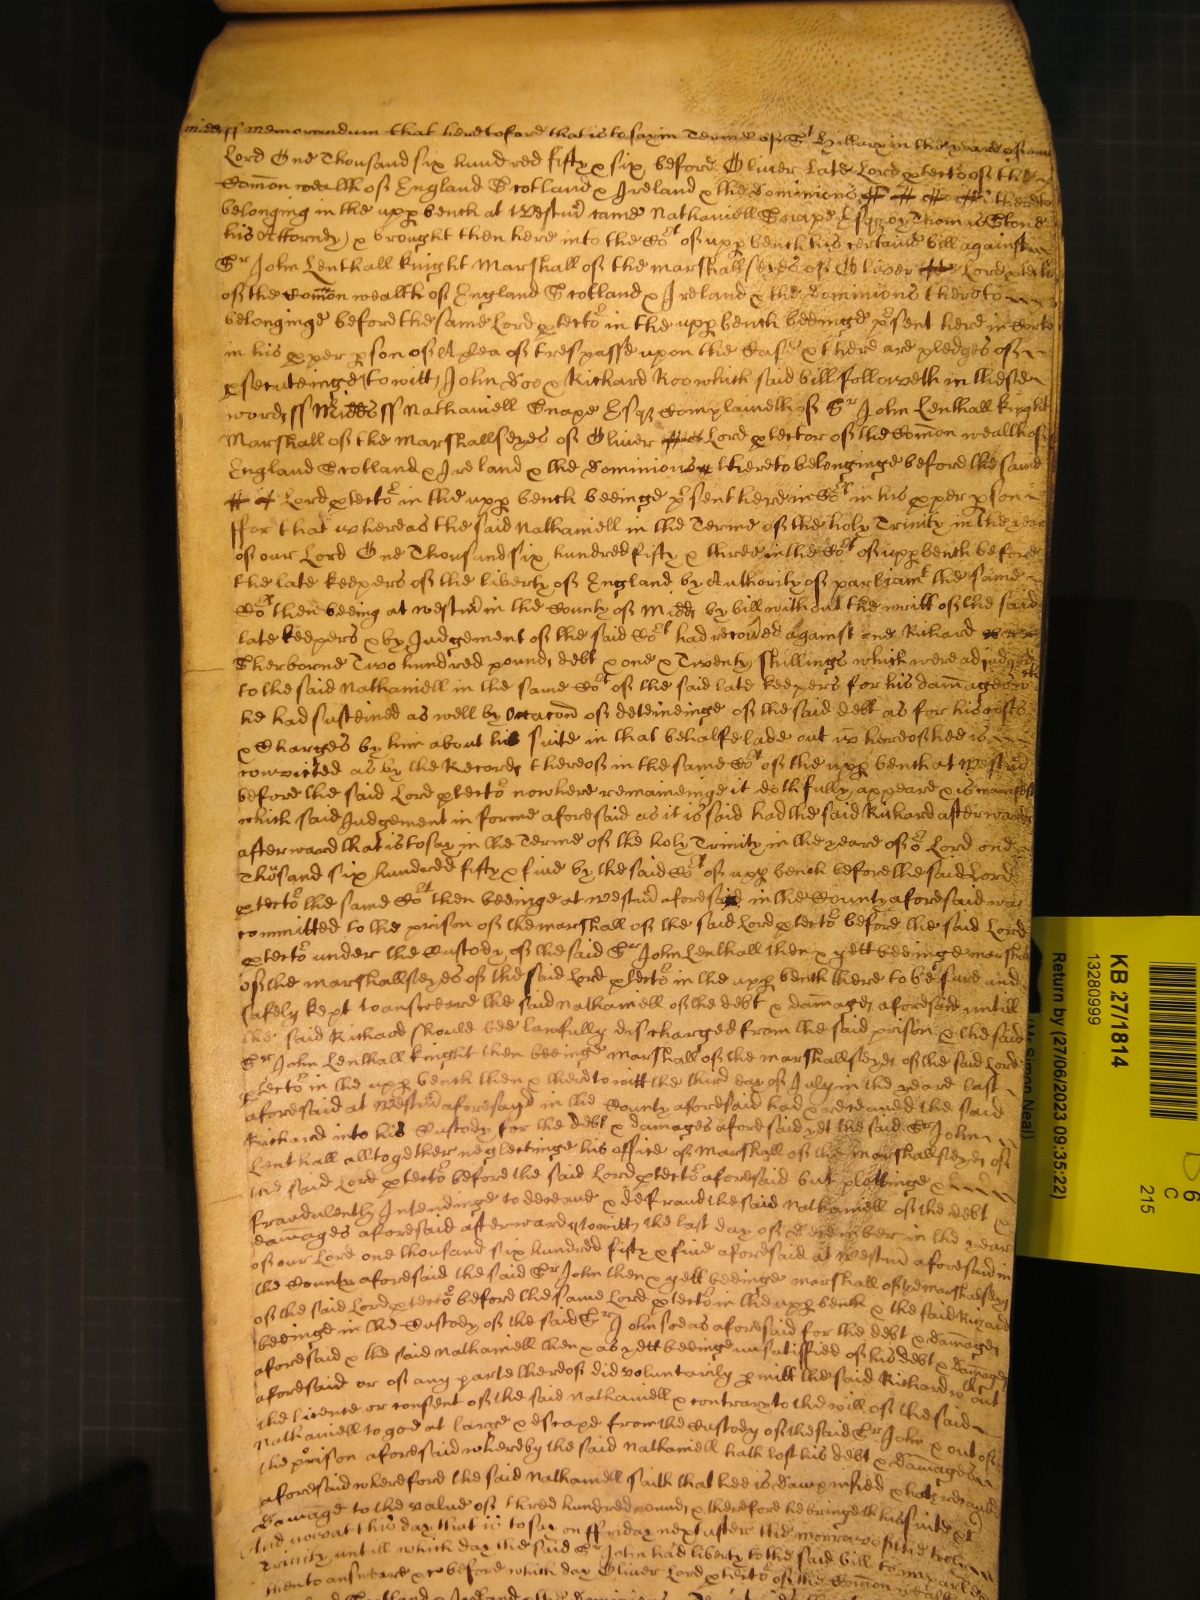 Midd ss Memorandum that heretofore that is to say in Terme of St Hillary in the yeare of our
Lord One Thousand six hundred fifty & six before Oliver late Lord ptector of the
Comon wealth of England Scotland & Ireland & the Dominions thereto
belonging in the upp bench at Westmr came Nathaniell Snape Esqr by Thomas Stone
his Attorney & brought then here into the Cort of upp bench his certaine bill against
Sr John Lenthall Knight Marshall of the marshallseyes of Oliver Lord ptector
of the Comon wealth of England Scotland & Ireland & the Dominions thereto
belonginge before the same Lord ptector in the upp bench beeinge psent here in Corte
in his pper pson of A plea of trespasse upon the Case & there are pledges of
psecuteinge (to witt) John Doo & Richard Roo which said bill followeth in these
words ss Midds ss Nathaniell Snape Esqr Complaineth of Sr John Lenthall Knight
Marshall of the Marshallseyes of Oliver Lord ptector of the Comon wealth of
England Scotland & Ireland & the Dominions thereto belonginge before the same
Lord ptector in the upp bench beeinge psent here in Cort in his pper pson
ffor that whereas the said Nathaniell in the Terme of the holy Trinity in the year
of our Lord One Thousand six hundred fifty & three in the Cort of upp bench before
the late keepers of the liberty of England by Authority of parliamt the same
Cort then beeing at Westmr in the County of Midds by bill without the writt of the said
late keepers & by Judgement of the said Cort had recoved against one Richard
Sherborne Two hundred pounds debt & one & Twenty shillings which were adjudged
to the said Nathaniell in the same Cort of the said late keepers for his damages wch
he had susteined as well by Occacon of deteineinge of the said debt as for his costs
& Charges by him about his suite in that behalfe lade out whereof hee is
convicted as by the Records thereof in the same Cort of the upp bench at Westmr
before the said Lord ptector now here remaineinge it doth fully appeare & is manifest
which said Judgement in forme aforesaid as it is said had the said Richard afterwards
afterward that is to say in the Terme of the holy Trinity in the yeare of or Lord one
Thousand six hundred fifty & five by the said Cort of upp bench before the said Lord
ptector the same Cort then beeinge at Westmr aforesaid in the County aforesaid was
committed to the prison of the marshall of the said Lord ptector before the said Lord
ptector under the Custody of the said Sr John Lenthall then & yett beeinge marshall
of the marshallseyes of the said Lord ptector in the upp bench there to be sure and
safely kept to answeare the said Nathaniell of the debt & damages aforesaid untill
the said Richard should bee lawfully discharged from the said prison & the said
Sr John Lenthall Knight then beeinge marshall of the marshallseyes of the said Lord
ptector in the upp bench then & there to witt the third day of July in the yeare last
aforesaid at Westmr aforesayd in the County aforesaid had & receaved the said
Richard into his Custody for the debt & damages aforesaid yet the said Sr John
Lenthall alltogether neglectinge his office of Marshall of the Marshallseyes of
the said Lord ptector before the said Lord ptector aforesaid but plottinge &
fraudulently Intendinge to deceave & defraud the said Nathaniell of the debt &
damages aforesaid afterward (to witt) the last day of December in the yeare
of our Lord one thousand six hundred fifty & five aforesaid at Westmr aforesaid in
the County aforesaid the said Sr John then & yett beeinge marshall of the marshallseyes
of the said Lord ptector before the same Lord ptector in the upp bench & the said Richard
beeinge in the Custody of the said Sr John soe as aforesaid for the debt & damages
aforesaid & the said Nathaniell then & as yett beeinge unsatisfied of his debt & damages
aforesaid or of any parte thereof did voluntarily pmitt the said Richard wthout
the licence or consent of the said Nathaniell & contrary to the will of the said
Nathaniell to goe at large & escape from the Custody of the said Sr John & out of
the prison aforesaid whereby the said Nathaniell hath lost his debt & damages
aforesaid wherefore the said Nathaniell saith that hee is dampnified & hath
damage to the value of three hundred pounds & therefore he bringeth his suite &c
And now at this day that is to say on ffriday next after the morrow of the holy
Trinity untill which day the said Sr John had liberty to the said bill to imparle &
then to answeare & before which day Oliver Lord ptector of the Comon wealth
KB 27/1814
13280999
Return by (27/06/2023 09:35:22)
(Mr Simon Neal)
6
C
215